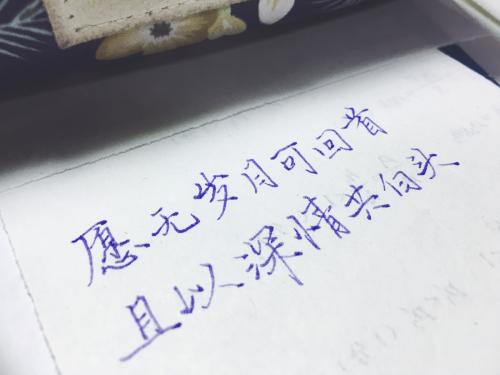 愿无岁月可回首
且以深情共白头